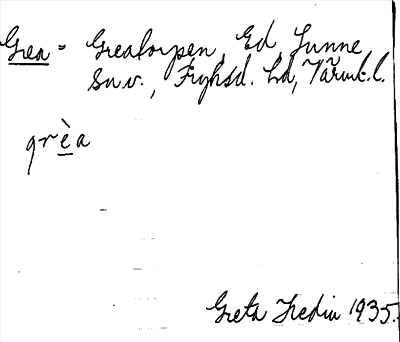 Grea = Grealorpen, Ed, Gunne
sn.v., Fryksd. hd, Värml.l.
grèa
Greta Hedin 1935.